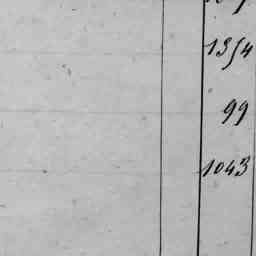 1354
99
1043